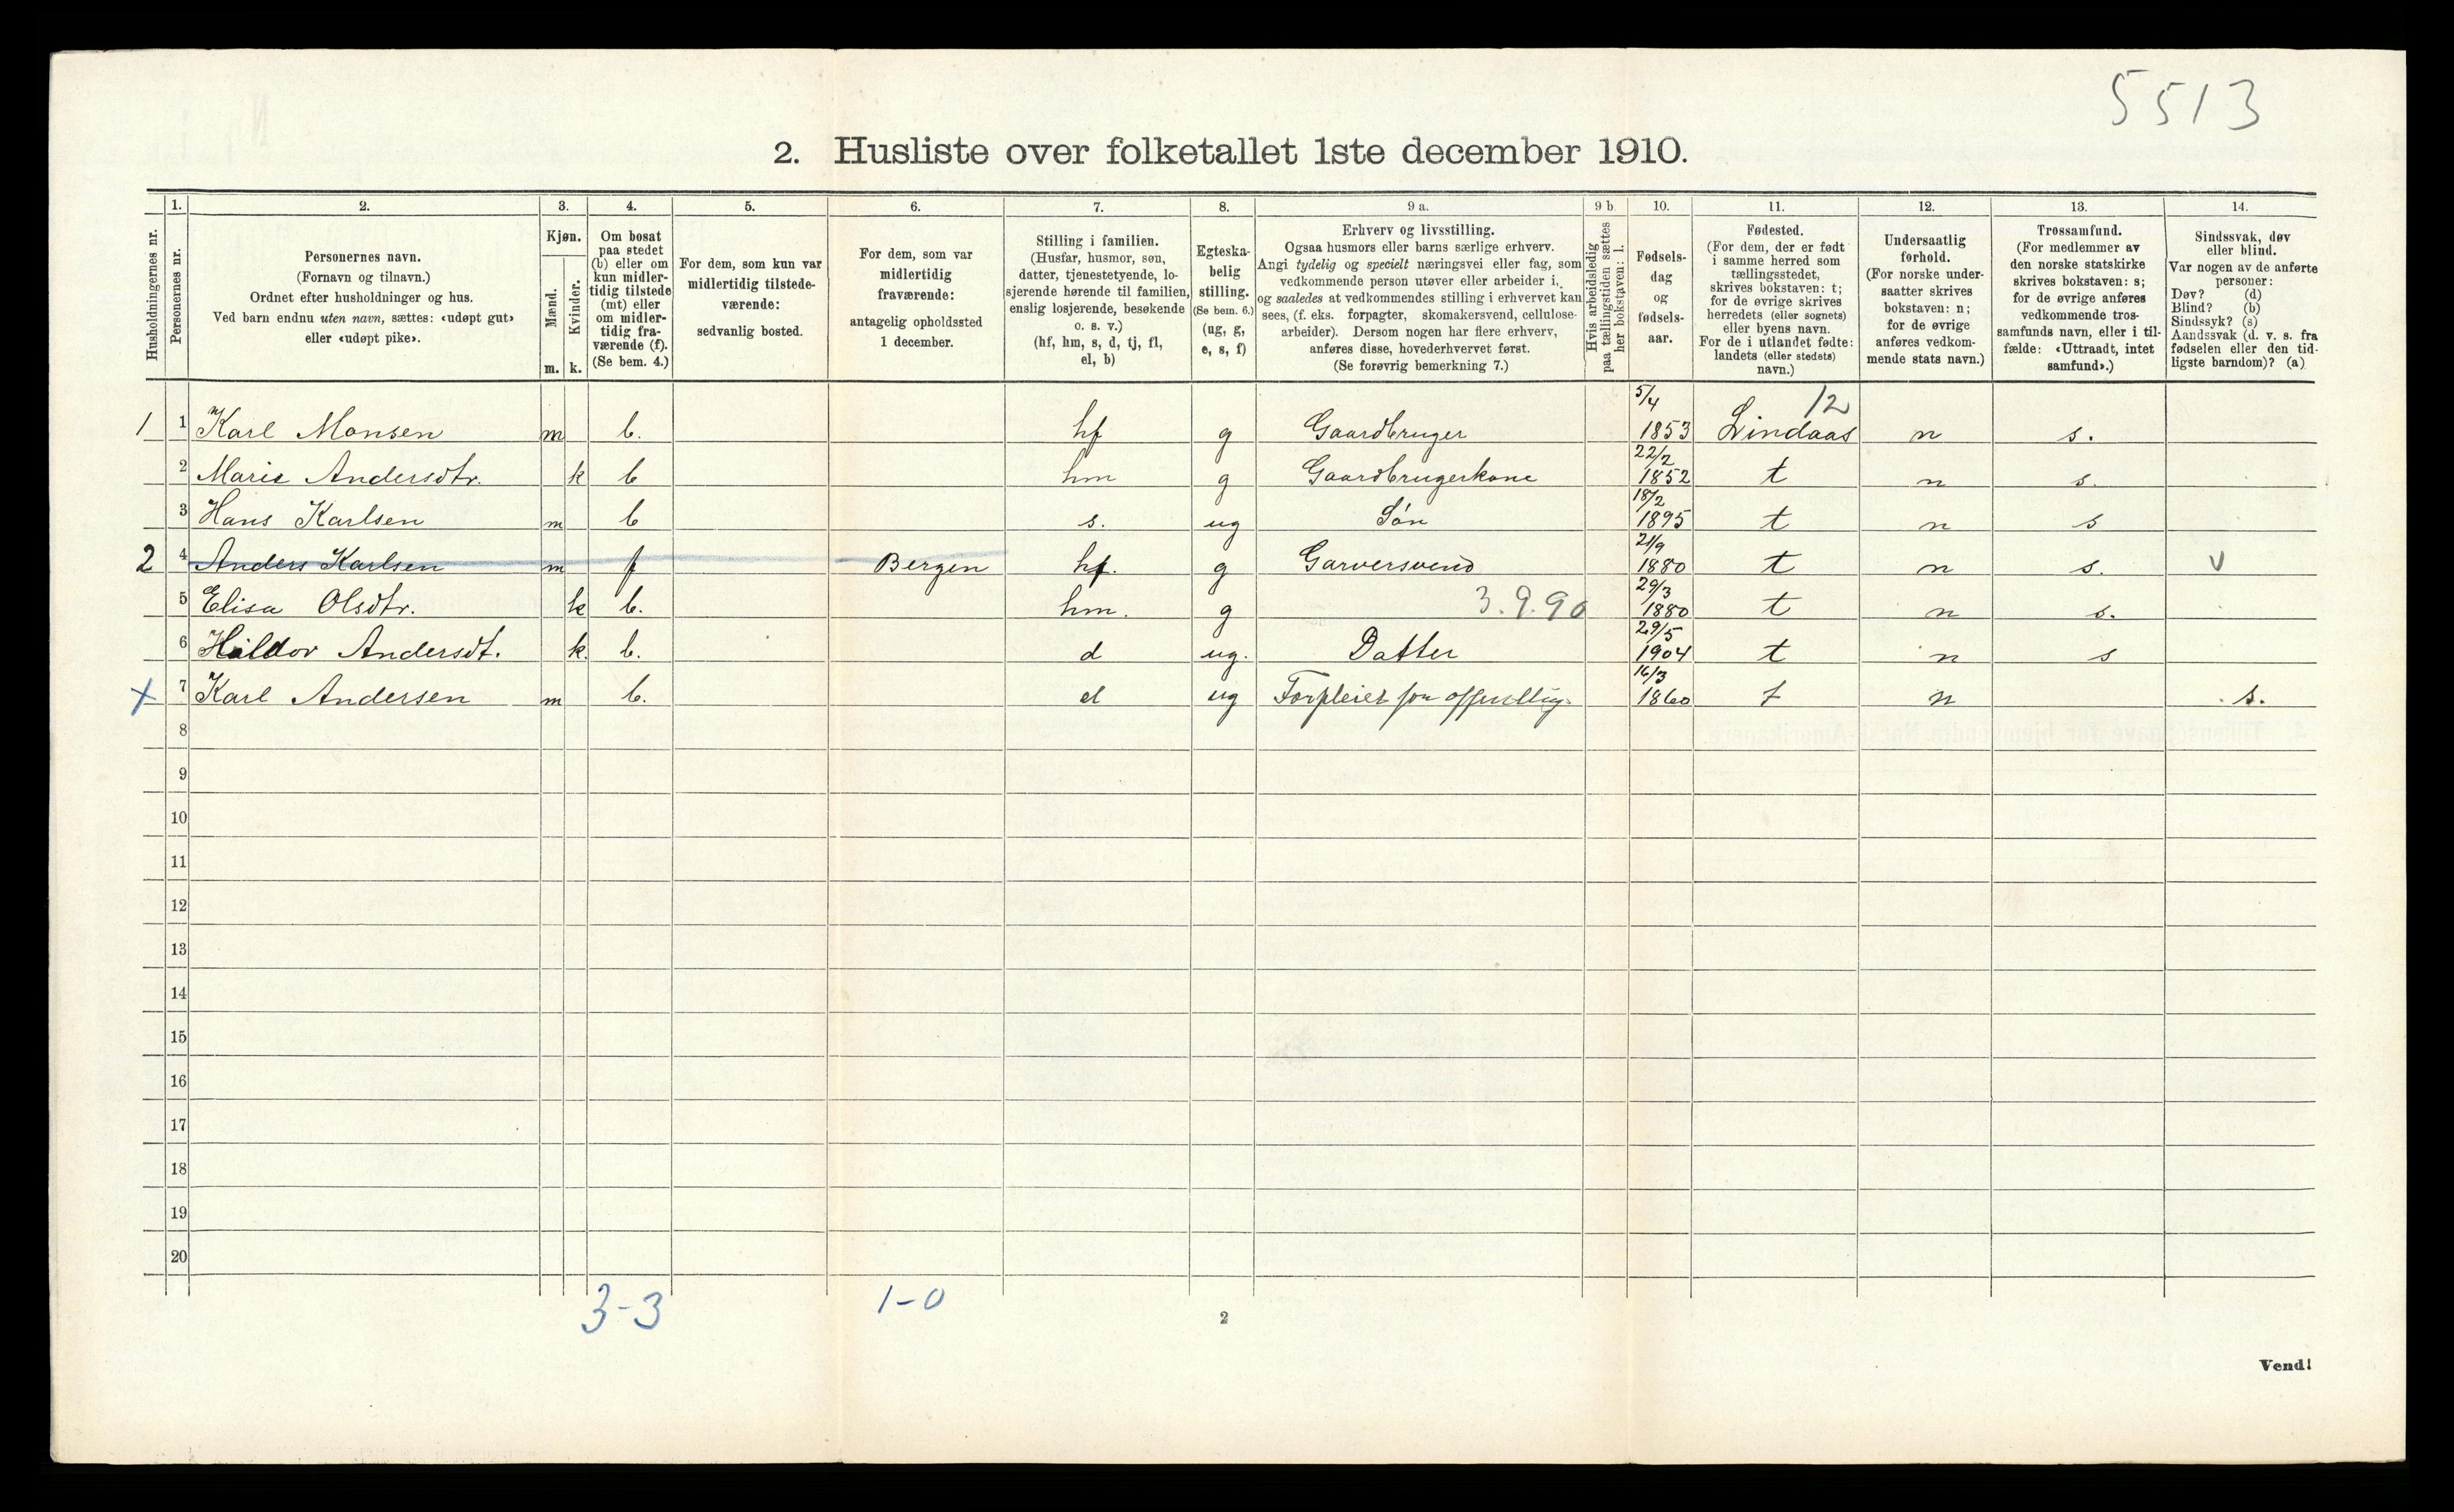 5513
2. Husliste over folketallet 1ste december 1910.
Husholdningernes nr.
1.
Personernes nr.
2.
Personernes navn.
(Fornavn og tilnavn.)
Ordnet efter husholdninger og hus.
Ved barn endnu uten navn, sættes: «udøpt gut»
eller «udøpt pike».
3.
Kjøn.
Mænd.
Kvinder.
m. k.
4.
Om bosat
paa stedet
(b) eller om
kun midler-
tidig tilstede
(mt) eller
om midler-
tidig fra-
værende (f).
(Se bem. 4.)
5.
For dem, som kun var
midlertidig tilstede-
værende:
sedvanlig bosted.
6.
For dem, som var
midlertidig
fraværende:
antagelig opholdssted
1 december.
7.
Stilling i familien.
(Husfar, husmor, søn,
datter, tjenestetyende, lo-
sjerende hørende til familien,
enslig losjerende, besøkende
o. s. v.)
(hf, hm, s, d, tj, fl,
el, b)
8.
Egteska-
belig
stilling.
(Se bem. 6.)
(ug, g,
e, s, f)
9 a.
Erhverv og livsstilling.
Ogsaa husmors eller barns særlige erhverv.
Angi tydelig og specielt næringsvei eller fag, som
vedkommende person utøver eller arbeider i,
og saaledes at vedkommendes stilling i erhvervet kan
sees, (f. eks. forpagter, skomakersvend, cellulose-
arbeider). Dersom nogen har flere erhverv,
anføres disse, hovederhvervet først.
(Se forøvrig bemerkning 7.)
9 b
Hvis arbeidsledig
paa tællingstiden sættes
her bokstaven: l.
10.
Fødsels-
dag
og
fødsels-
aar.
11.
Fødested.
(For dem, der er født
i samme herred som
tællingsstedet,
skrives bokstaven: t;
for de øvrige skrives
herredets (eller sognets)
eller byens navn.
For de i utlandet fødte:
landets (eller stedets)
navn.)
12.
Undersaatlig
forhold.
(For norske under-
saatter skrives
bokstaven: n;
for de øvrige
anføres vedkom-
mende stats navn.)
13.
Trossamfund.
(For medlemmer av
den norske statskirke
skrives bokstaven: s;
for de øvrige anføres
vedkommende tros-
samfunds navn, eller i til-
fælde: «Uttraadt, intet
samfund».)
14.
Sindssvak, døv
eller blind.
Var nogen av de anførte
personer:
Døv? (d)
Blind? (b)
Sindssyk? (s)
Aandssvak (d. v. s. fra
fødselen eller den tid-
ligste barndom)? (a)
12
1 1 Karl Monsen m b. hf g Gaardbruger 5/4 1853 Lindaas n s.
2 Marie Andersdtr. k b hm g Gaardbrugerkone 22/2 1852 t n s.
3 Hans Karlsen m b s. ug Søn 18/2 1895 t n s
2 4 Anders Karlsen m f Bergen hf. g Garversvend 21/9 1880 t n s. v
5 Elisa Olsdtr. k b. hm. g 3.9.90 29/3 1880 t n s.
6 Halldor Andersdt. k. b. d ug. Datter 29/5 1904 t n s
x 7 Karl Andersen m b. el ug Forpleiet 16/3 1860 t n s.
8
9
10
11
12
13
14
15
16
17
18
19
20
3-3 1-0
2
Vend!